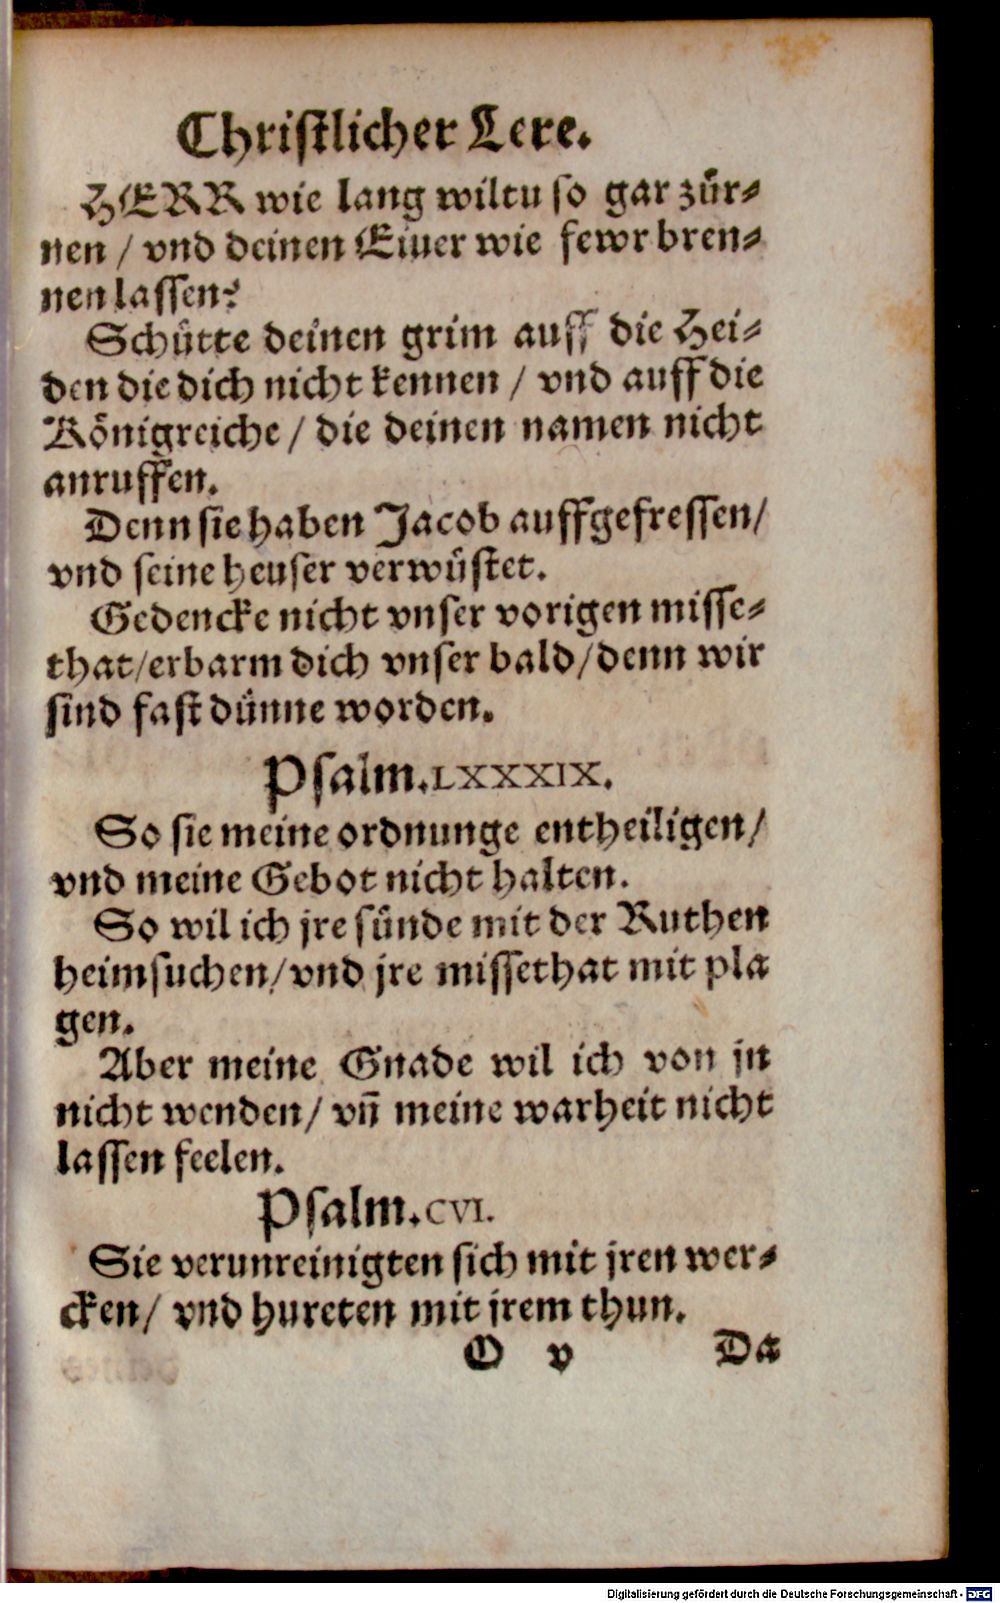 Christlicher Lere.
HERR wie lang wiltu so gar zür-
nen / vnd deinen Eiuer wie fewr bren-
nen lassen?
Schütte deinen grim auff die Hei-
den die dich nicht kennen / vnd auff die
Königreiche / die deinen namen nicht
anruffen.
Denn sie haben Jacob auffgefressen/
vnd seine heuser verwüstet.
Gedencke nicht vnser vorigen misse-
that/erbarm dich vnser bald/denn wir
sind fast dünne worden.
Psalm.LXXXIX.
So sie meine ordnunge entheiligen/
vnd meine Gebot nicht halten.
So wil ich jre sünde mit der Ruthen
heimsuchen/vnd jre missethat mit pla
gen.
Aber meine Gnade wil ich von jn
nicht wenden/ vñ meine warheit nicht
lassen feelen.
Psalm.CVI.
Sie verunreinigten sich mit jren wer-
cken/ vnd hureten mit jrem thun.
O v Da
Digitalisierung gefördert durch die Deutsche Forschungsgemeinschaft - DFG